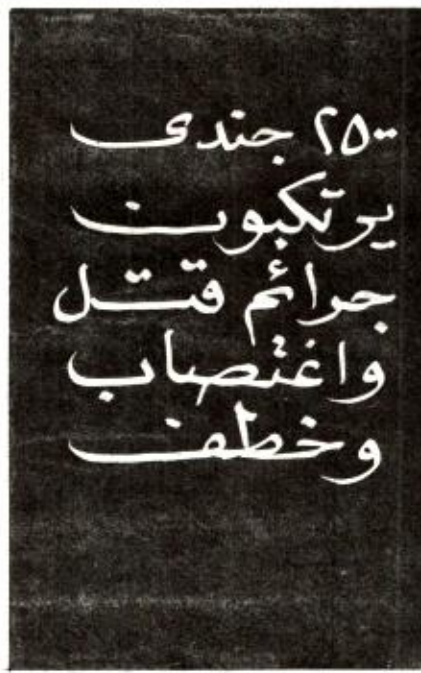 ٢٥٠٠ جندى
يرتكبون
جرائم قتل
واغتصاب
وخطف